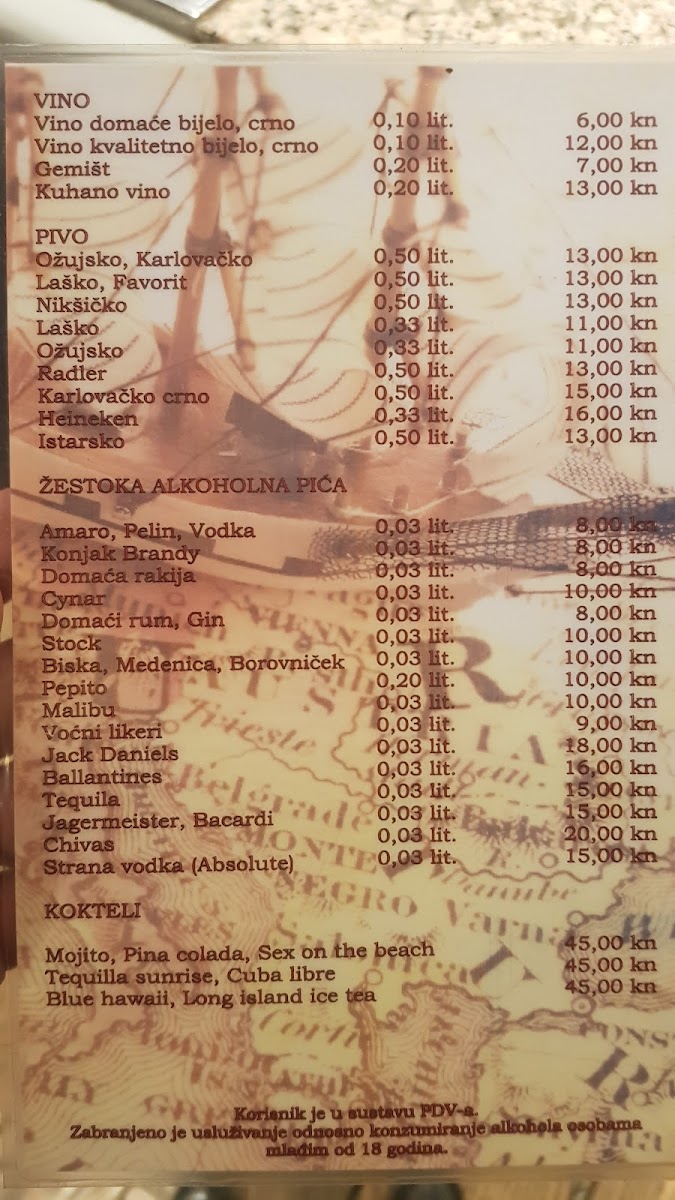 VINO
Vino domaće bijelo, crno 0,10 lit. 6,00 kn
Vino kvalitetno bijelo, crno 0,10 lit. 12,00 kn
Gemišt 0,20 lit. 7,00 kn
Kuhano vino 0,20 lit. 13,00 kn
PIVO
Ožujsko, Karlovačko 0,50 lit. 13,00 kn
Laško, Favorit 0,50 lit. 13,00 kn
Nikšičko 0,50 lit. 13,00 kn
Laško 0,33 lit. 11,00 kn
Ožujsko 0,33 lit. 11,00 kn
Radler 0,50 lit. 13,00 kn
Karlovačko crno 0,50 lit. 15,00 kn
Heineken 0,33 lit. 16,00 kn
Istarsko 0,50 lit. 13,00 kn
ŽESTOKA ALKOHOLNA PIĆA
Amaro, Pelin, Vodka 0,03 lit. 8,00 kn
Konjak Brandy 0,03 lit. 8,00 kn
Domaća rakija 0,03 lit. 8,00 kn
Cynar 0,03 lit. 10,00 kn
Domaći rum, Gin 0,03 lit. 8,00 kn
Stock 0,03 lit. 10,00 kn
Biska, Medenica, Borovniček 0,03 lit. 10,00 kn
Pepito 0,20 lit. 10,00 kn
Malibu 0,03 lit. 10,00 kn
Voćni likeri 0,03 lit. 9,00 kn
Jack Daniels 0,03 lit. 18,00 kn
Ballantines 0,03 lit. 16,00 kn
Tequila 0,03 lit. 15,00 kn
Jagermeister, Bacardi 0,03 lit. 15,00 kn
Chivas 0,03 lit. 20,00 kn
Strana vodka (Absolute) 0,03 lit. 15,00 kn
KOKTELI
Mojito, Pina colada, Sex on the beach 45,00 kn
Tequilla sunrise, Cuba libre 45,00 kn
Blue hawaii, Long island ice tea 45,00 kn
Korisnik je u sustavu PDV-a.
Zabranjeno je usluživanje odnosno konzumiranje alkohola osobama
mlađim od 18 godina.
VIENNA
Trieste
Belgrade
MONTE
NEGRO
Varna